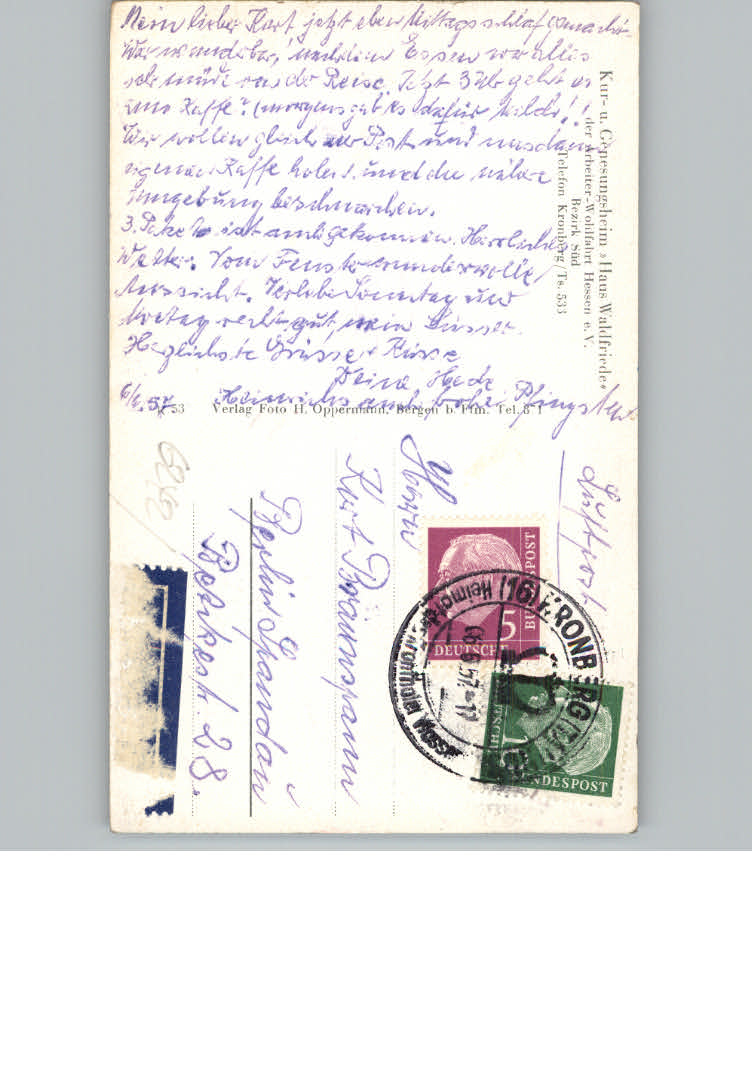 Mein lieber Kurt, jetzt eben Mittagsschlaf gemacht.
War wunderbar, nachdem Essen war alles
sehr müde von der Reise. Jetzt 3 Uhr geht es
zum Kaffe. (morgens gab es dafür Milch!!
Wir wollen gleich zur Post und uns dann
eigenen Kaffe holen. und die nähere
Umgebung beschnarchen.
3. Paket ist angekommen. Herrliches
Wetter. Vom Fenster wundervolle
Aussicht. Verlebe Sonntag und
Montag recht gut, mein Süsser.
Herzlichste Grüsse + Küsse
Deine Hede
6/6.57 frohe Pfingsten
Kur- u. Genesungsheim »Haus Waldfriede«
der Arbeiter-Wohlfahrt Hessen e.V.
Bezirk Süd
Telefon Kronberg/Ts. 533
53 Verlag Foto H. Oppermann, Bergen b. Ffm. Tel. 8 1
Luftpost
Herrn
Kurt Braunspann
Berlin Spandau
28.
5
DEUTSCHE
BUNDESPOST
(16) KRONBERG (TAUNUS)
06.6.57.-17
Heimat der Kronthaler Wasser
BUNDESPOST